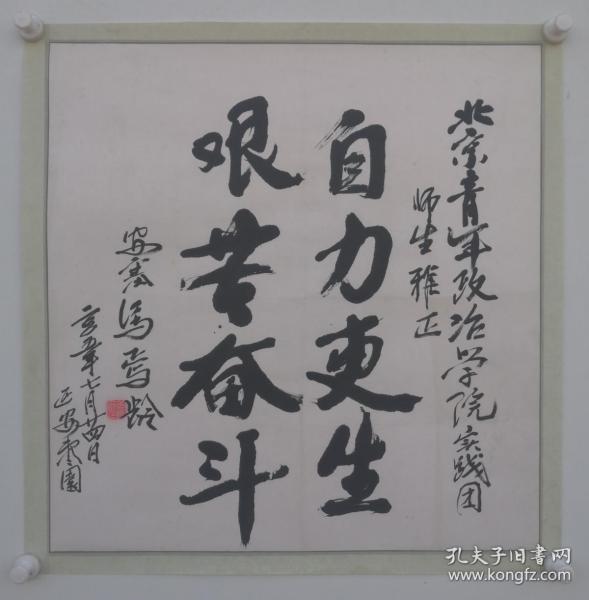 北京青年政治学院实践团
师生雅正
自力更生
艰苦奋斗
安塞冯
年七月廿四日
于安枣园
孔夫子旧书网
www.kongfz.com